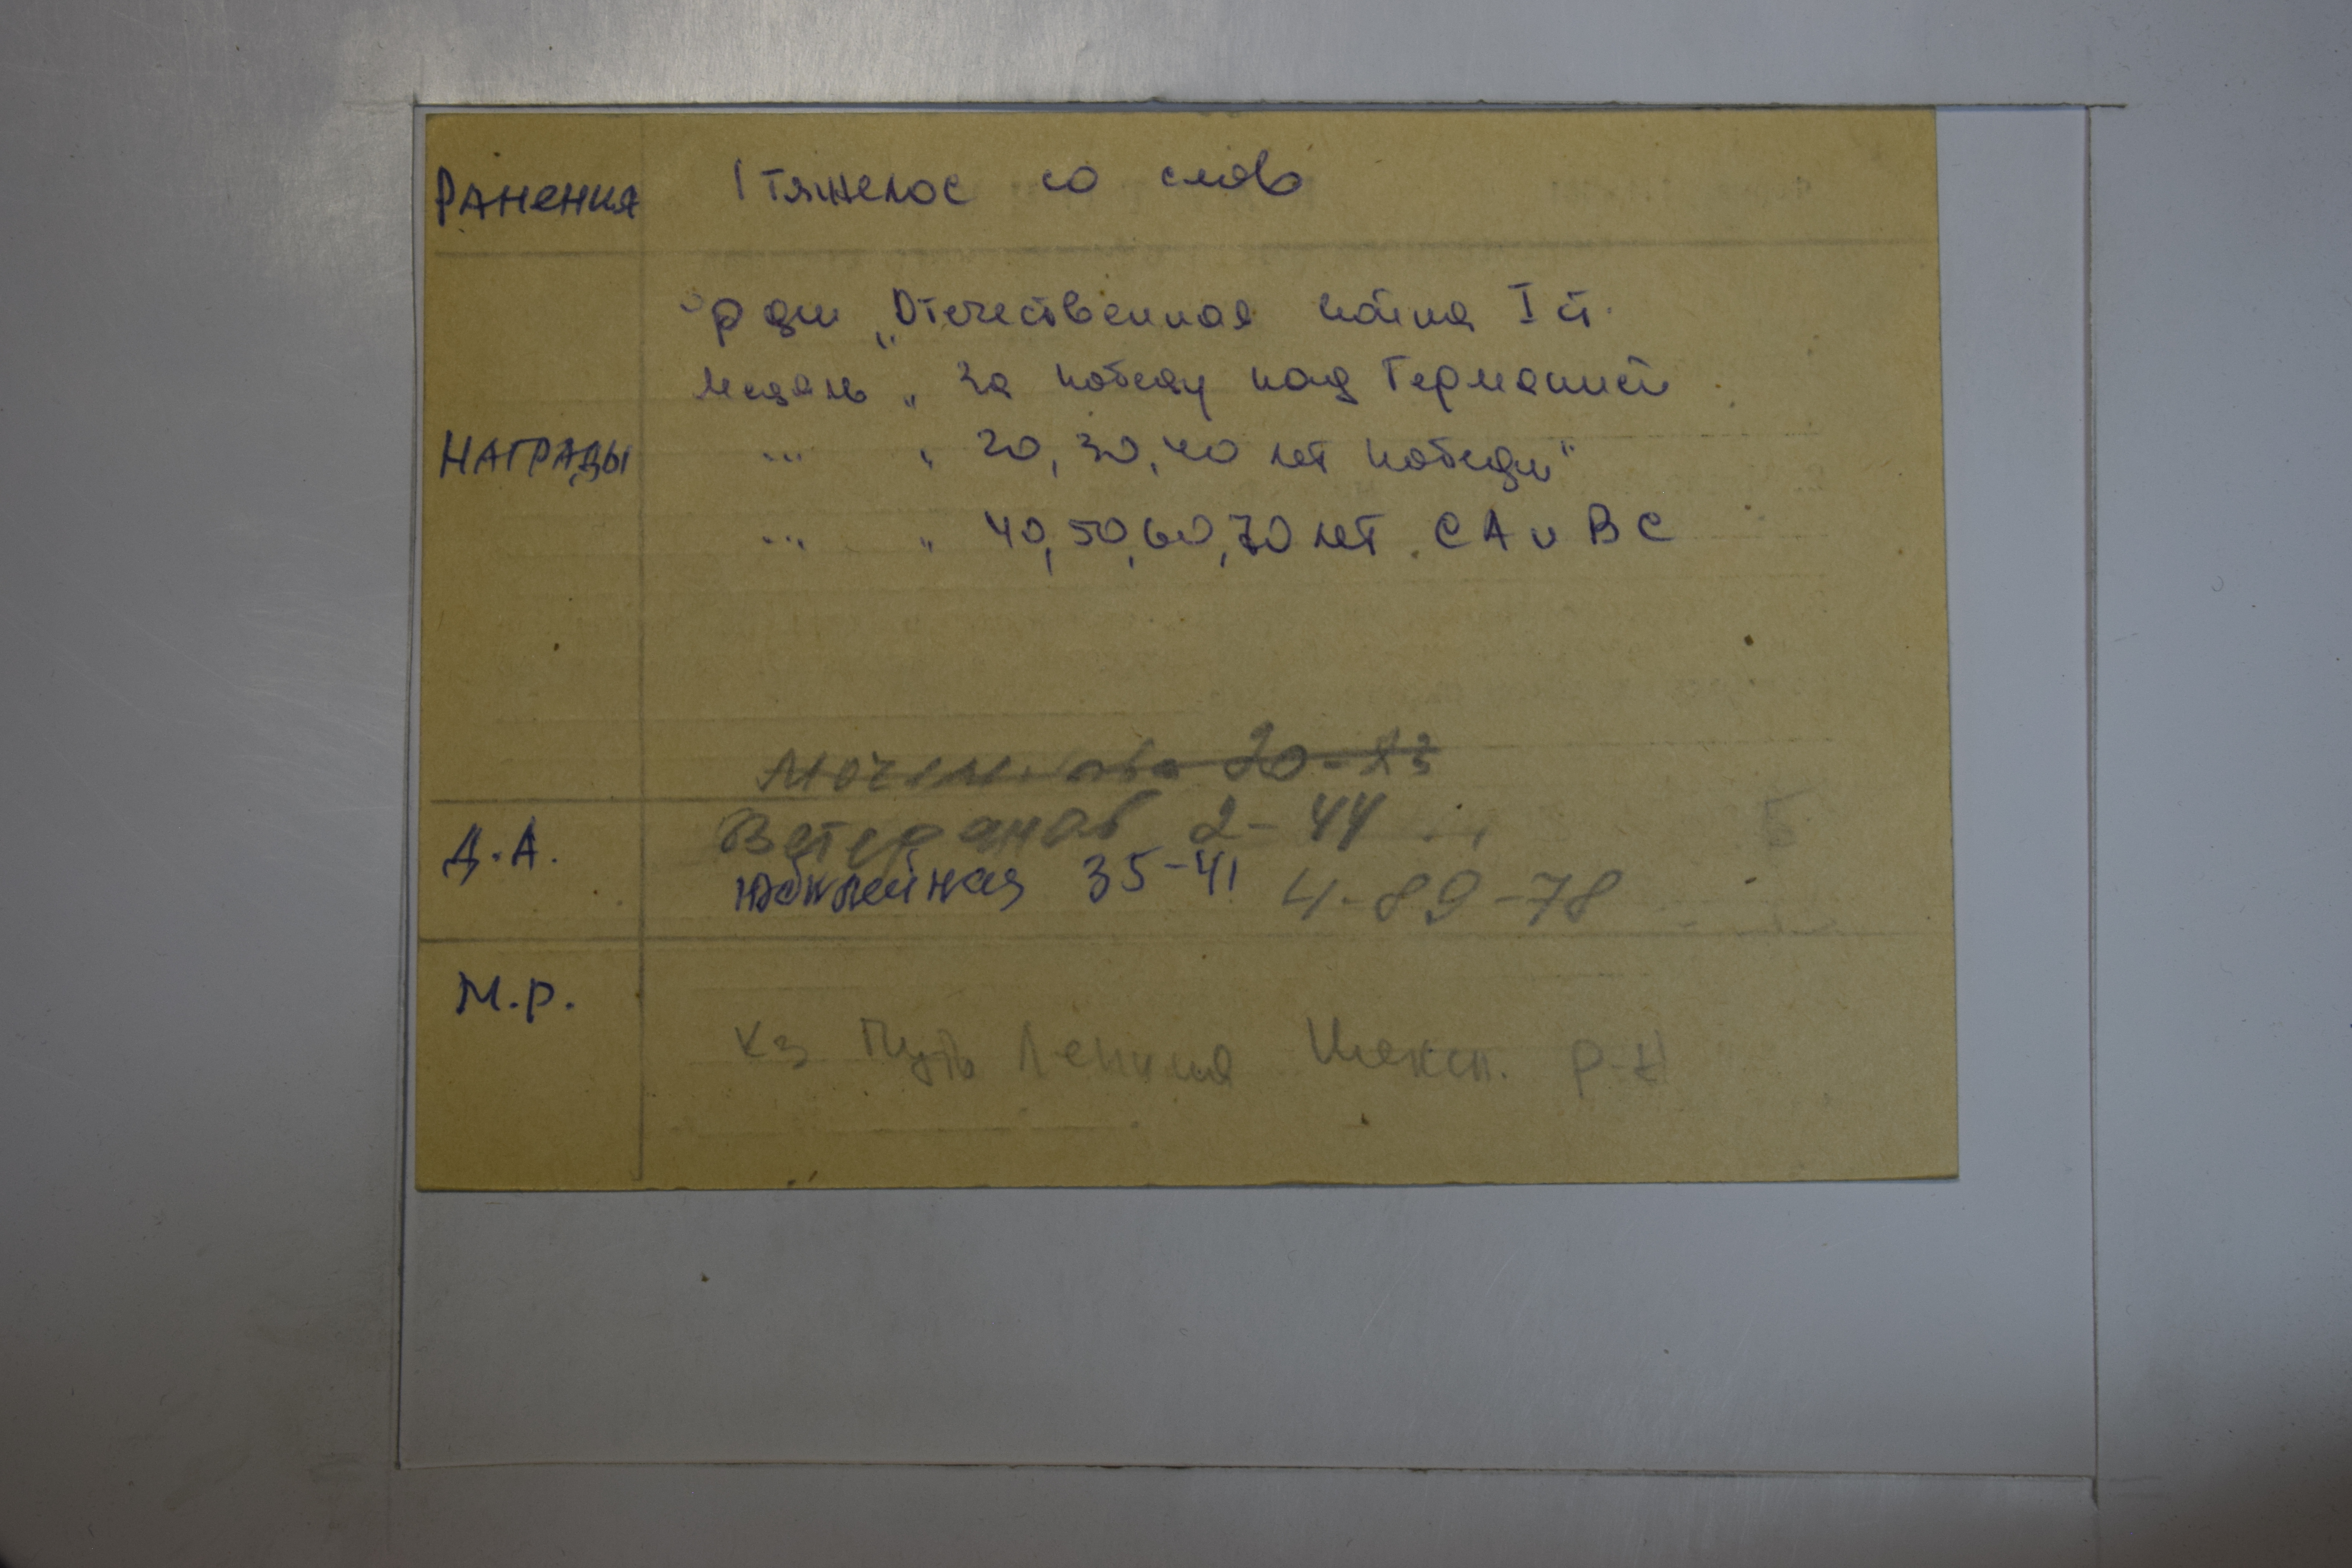 РАНЕНИЯ 1 тяжелое со слов
орден „Отечественная война I ст.
Медаль „За победу над Германией
НАГРАДЫ -"- „20, 30, 40 лет победы"
-"- „40, 50, 60, 70 лет СА и ВС
20-83
Д.А. Ветеранов 2-44
Юбилейная 35-41 4-89-78
М.р.
к-з Путь Ленина Шексн. р-н